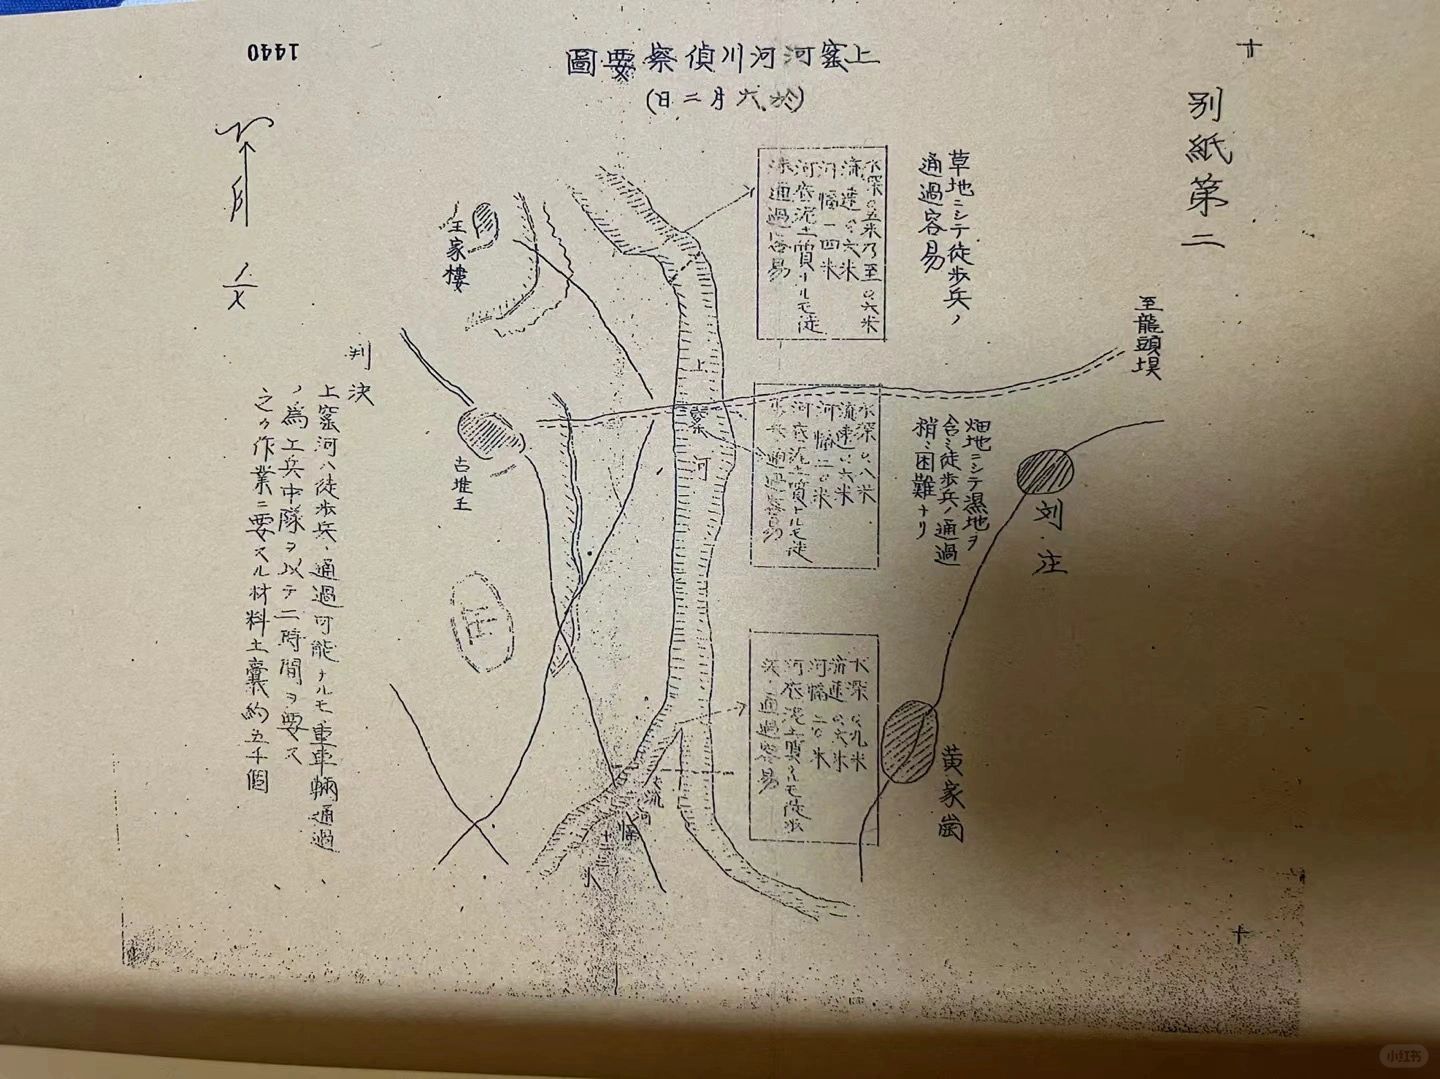 別紙第二
上窰河河川偵察要圖
(於六月二日)
1440
至龍頭垻
草地ニシテ徒歩兵ノ
通過容易
水深〇.五米乃至〇.六米
流速〇.六米
河幅一四米
河底泥土質ナルモ徒
渉通過容易
畑地ニシテ濕地ヲ
含ミ徒歩兵ノ通過
稍〻困難ナリ
水深〇.八米
流速〇.六米
河幅二〇米
河底泥土質ナルモ徒
歩兵ノ通過容易
水深〇.九米
流速〇.六米
河幅二〇米
河底泥土質ナルモ徒歩
兵ノ通過容易
刘庄
黄家崗
上窰河
王家樓
古堆王
支流河
幅十三米
判決
上窰河ハ徒歩兵ノ通過可能ナルモ重車輛通過
ノ爲工兵中隊ヲ以テ二時間ヲ要ス
之カ作業ニ要スル材料土囊約五千個
小红书